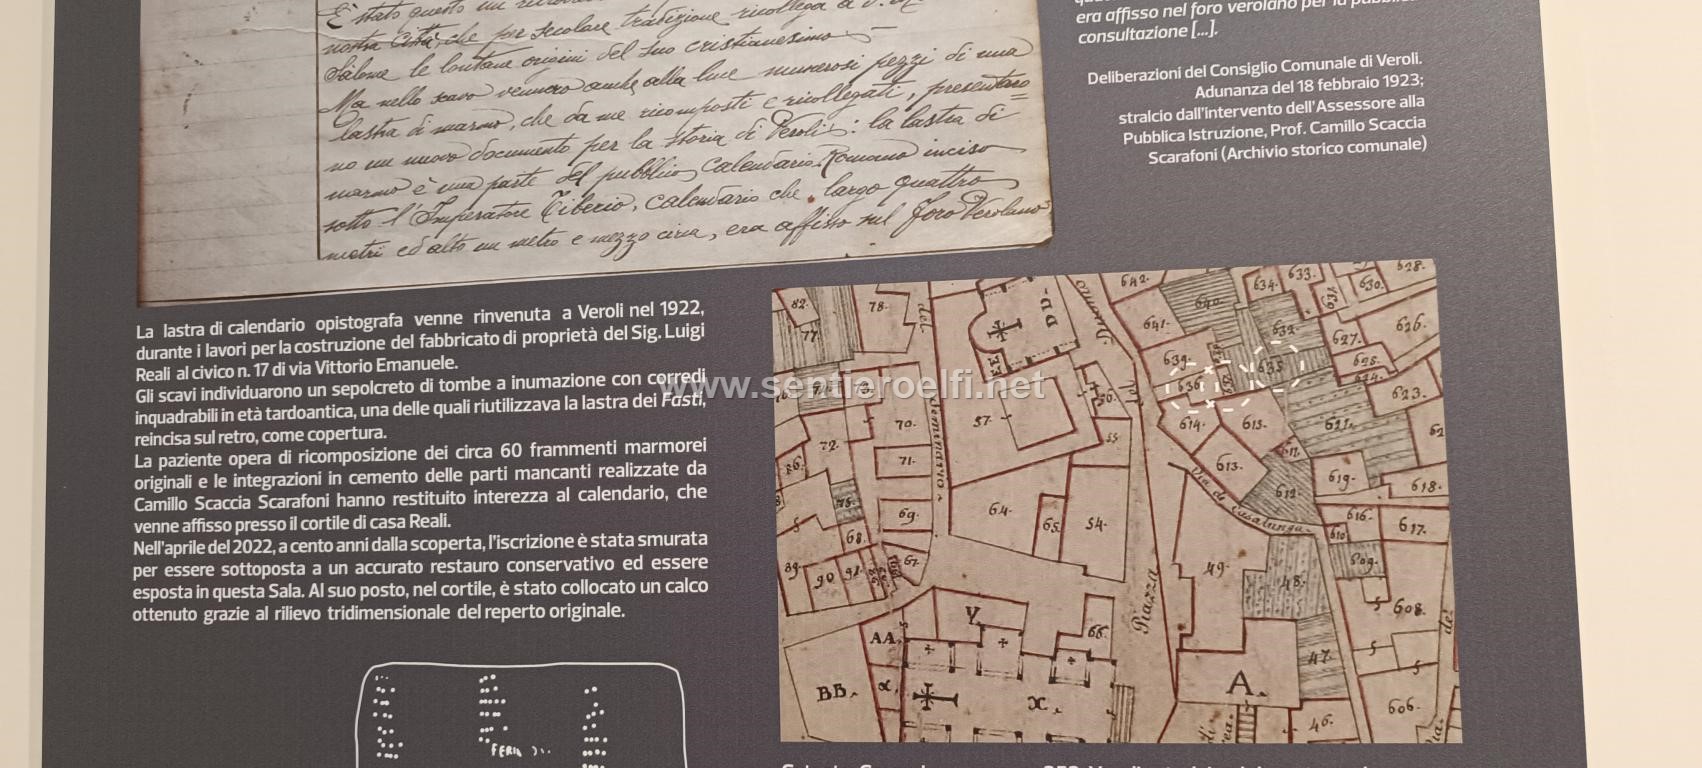 È stato questo un
nostra Città, che per secolare tradizione ricollega a S. M.
Salome le lontane origini del suo cristianesimo
Ma nello scavo vennero anche alla luce numerosi pezzi di una
lastra di marmo, che da me ricomposti e ricollegati, presenta
no un nuovo documento per la storia di Veroli: la lastra di
marmo è una parte del pubblico calendario Romano inciso
sotto l'Imperatore Tiberio, calendario che, largo quattro
metri ed alto un metro e mezzo circa, era affisso nel Foro Verolano
era affisso nel foro verolano per la
consultazione [...].
Deliberazioni del Consiglio Comunale di Veroli.
Adunanza del 18 febbraio 1923;
stralcio dall'intervento dell'Assessore alla
Pubblica Istruzione, Prof. Camillo Scaccia
Scarafoni (Archivio storico comunale)
La lastra di calendario opistografa venne rinvenuta a Veroli nel 1922,
durante i lavori per la costruzione del fabbricato di proprietà del Sig. Luigi
Reali al civico n. 17 di via Vittorio Emanuele.
Gli scavi individuarono un sepolcreto di tombe a inumazione con corredi
inquadrabili in età tardoantica, una delle quali riutilizzava la lastra dei Fasti,
reincisa sul retro, come copertura.
La paziente opera di ricomposizione dei circa 60 frammenti marmorei
originali e le integrazioni in cemento delle parti mancanti realizzate da
Camillo Scaccia Scarafoni hanno restituito interezza al calendario, che
venne affisso presso il cortile di casa Reali.
Nell'aprile del 2022, a cento anni dalla scoperta, l'iscrizione è stata smurata
per essere sottoposta a un accurato restauro conservativo ed essere
esposta in questa Sala. Al suo posto, nel cortile, è stato collocato un calco
ottenuto grazie al rilievo tridimensionale del reperto originale.
www.sentieroelfi.net
82. 78. del DD. Duomo 642. 640. 634. 633. 630. 628.
77. 641. 632. 627. 626.
639. 635. 625.
73. 636. 624. 623.
70. 57. 56. 614. 615. 621.
72. 55. Seminario
71. 613. 612. 619. 618.
86. 75. 64. 65. 54. Via di Casalunga 616. 617.
69. 610.
68. 67. 49. 609.
89. 90. 91. Piazza 48. 608.
Y. 66.
AA. 47.
BB. X. A. 606.
46.
FERIA